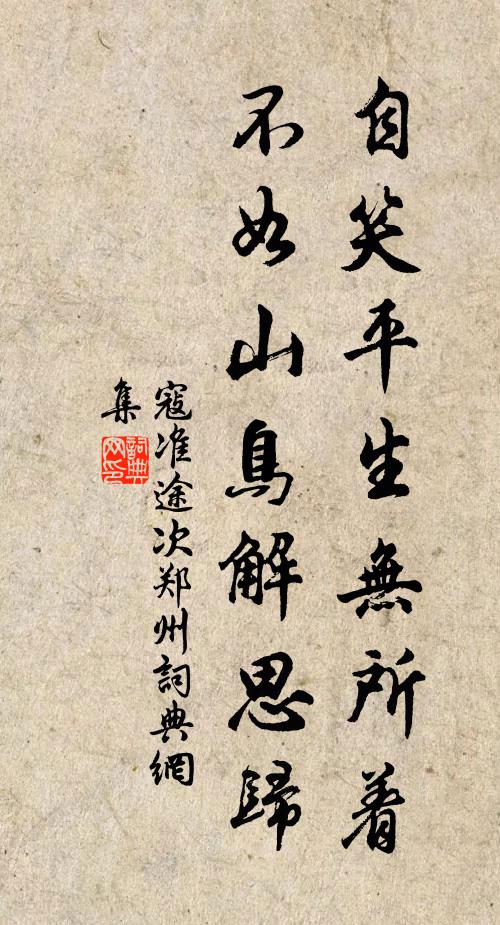 自笑平生無所着
不如山鳥解思歸
寇准途次郑州詞典網
集
詞典
网印